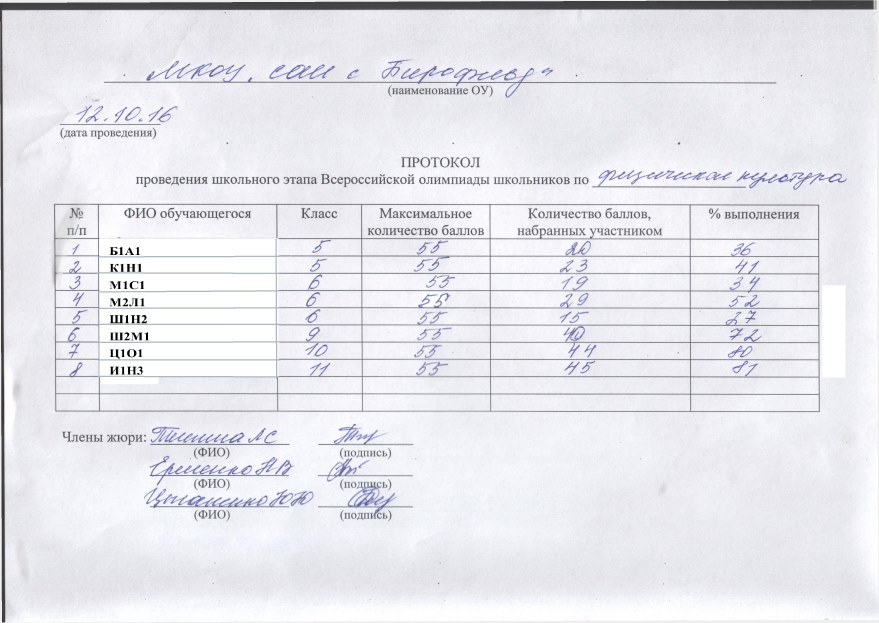 МКОУ "СОШ с Бирофельд"
(наименование ОУ)
12.10.16
(дата проведения)
ПРОТОКОЛ
проведения школьного этапа Всероссийской олимпиады школьников по физической культура
№ п/п ФИО обучающегося Класс Максимальное количество баллов Количество баллов, набранных участником % выполнения
1 Б1А1 5 55 20 36
2 К1Н1 5 55 23 41
3 М1С1 6 55 19 34
4 М2Л1 6 55 29 52
5 Ш1Н2 6 55 15 27
6 Ш2М1 9 55 40 72
7 Ц1О1 10 55 44 80
8 И1Н3 11 55 45 81
Члены жюри:
(ФИО) (подпись)
Ерменко НВ
(ФИО) (подпись)
(ФИО) (подпись)